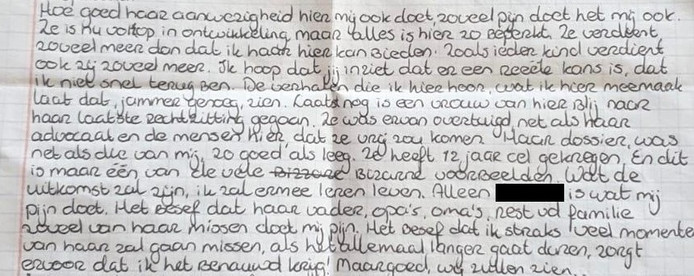 Hoe goed haar aanwezigheid hier mij ook doet, zoveel pijn doet het mij ook.
Ze is nu volop in ontwikkeling, maar alles is hier zo beperkt. Ze verdient
zoveel meer dan dat ik haar hier kan bieden. Zoals ieder kind verdient
ook zij zoveel meer. Ik hoop dat jij inziet dat er een reeële kans is, dat
ik niet snel terug ben. De verhalen die ik hier hoor, wat ik hier meemaak
laat dat, jammer genoeg, zien. Laatst nog is een vrouw van hier blij naar
haar laatste rechtzitting gegaan. Ze was ervan overtuigd, net als haar
advocaat en de mensen hier, dat ze vrij zou komen. Haar dossier, was
net als die van mij, zo goed als leeg. Ze heeft 12 jaar cel gekregen. En dit
is maar één van de vele bizarre bizarre voorbeelden. Wat de
uitkomst zal zijn, ik zal ermee leren leven. Alleen is wat mij
pijn doet. Het besef dat haar vader, opa's, oma's, rest vd familie
zoveel van haar missen doet mij pijn. Het besef dat ik straks veel momente
van haar zal gaan missen, als het allemaal langer gaat duren, zorgt
ervoor dat ik het benauwd krijg! Maargoed, wij zullen zien.